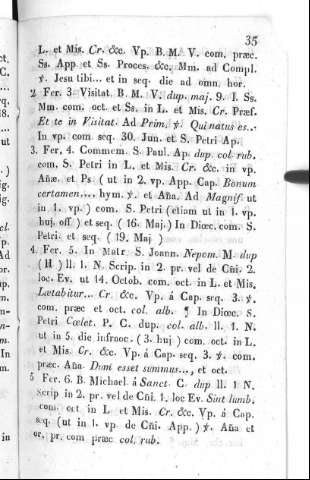 35
L. et Mis. Cr. &c. Vp. B. M. V. com. præc.
Ss. App et Ss. Proces. &c. Mm. ad Compl.
℣. Jesu tibi... et in seq. die ad omn. hor.
2 Fer. 3. Visitat. B. M. V. dup. maj. 9. l. Ss.
Mm. com. oct. et Ss. in L. et Mis. Cr. Præf.
Et te in Visitat. Ad Prim. ℣. Qui natus es..
In vp. com. seq. 30. Jun. et S. Petri Ap.
3. Fer. 4. Commem. S. Paul. Ap. dup. col rub.
com. S. Petri in L. et Mis. Cr. &c. in vp.
Añæ. et Ps. ( ut in 2. vp. App. Cap. Bonum
certamen...., hym. ℣. et Aña. Ad Magnif. ut
in 1. vp. ) com. S. Petri (etiam ut in 1. vp.
huj. off ) et seq. ( 16. Maj.) In Diœc. com. S.
Petri et seq. ( 19. Maj )
4. Fer. 5. In Matr S. Joann. Nepom. M. dup
( H ) ll. 1. N. Scrip. in 2. pr. vel de Cñi. 2.
loc. Ev. ut. 14. Octob. com. oct. in L. et Mis.
Lætabitur... Cr &c. Vp. á Cap. seq. 3. ℣.
com. præc et oct. col. alb. ¶ In Diœc. S.
Petri Cœlet. P. C. dup. col. alb. ll. 1. N.
ut in 5. die infraoc. ( 3. huj ) com. oct. in L.
et Mis. Cr. &c. Vp. á Cap. seq. 3. ℣. com.
præc. Aña. Dum esset summus..., et oct.
5 Fer. 6. B Michael. á Sanct. C. dup ll. 1 N.
Scrip in 2. pr. vel de Cñi. 1. loc Ev. Sint lumb.
com. oct in L et Mis. Cr. &c. Vp. á Cap.
seq. (ut in 1. vp de Cñi. App. ) ℣. Aña et
or. pr. com præc col. rub.